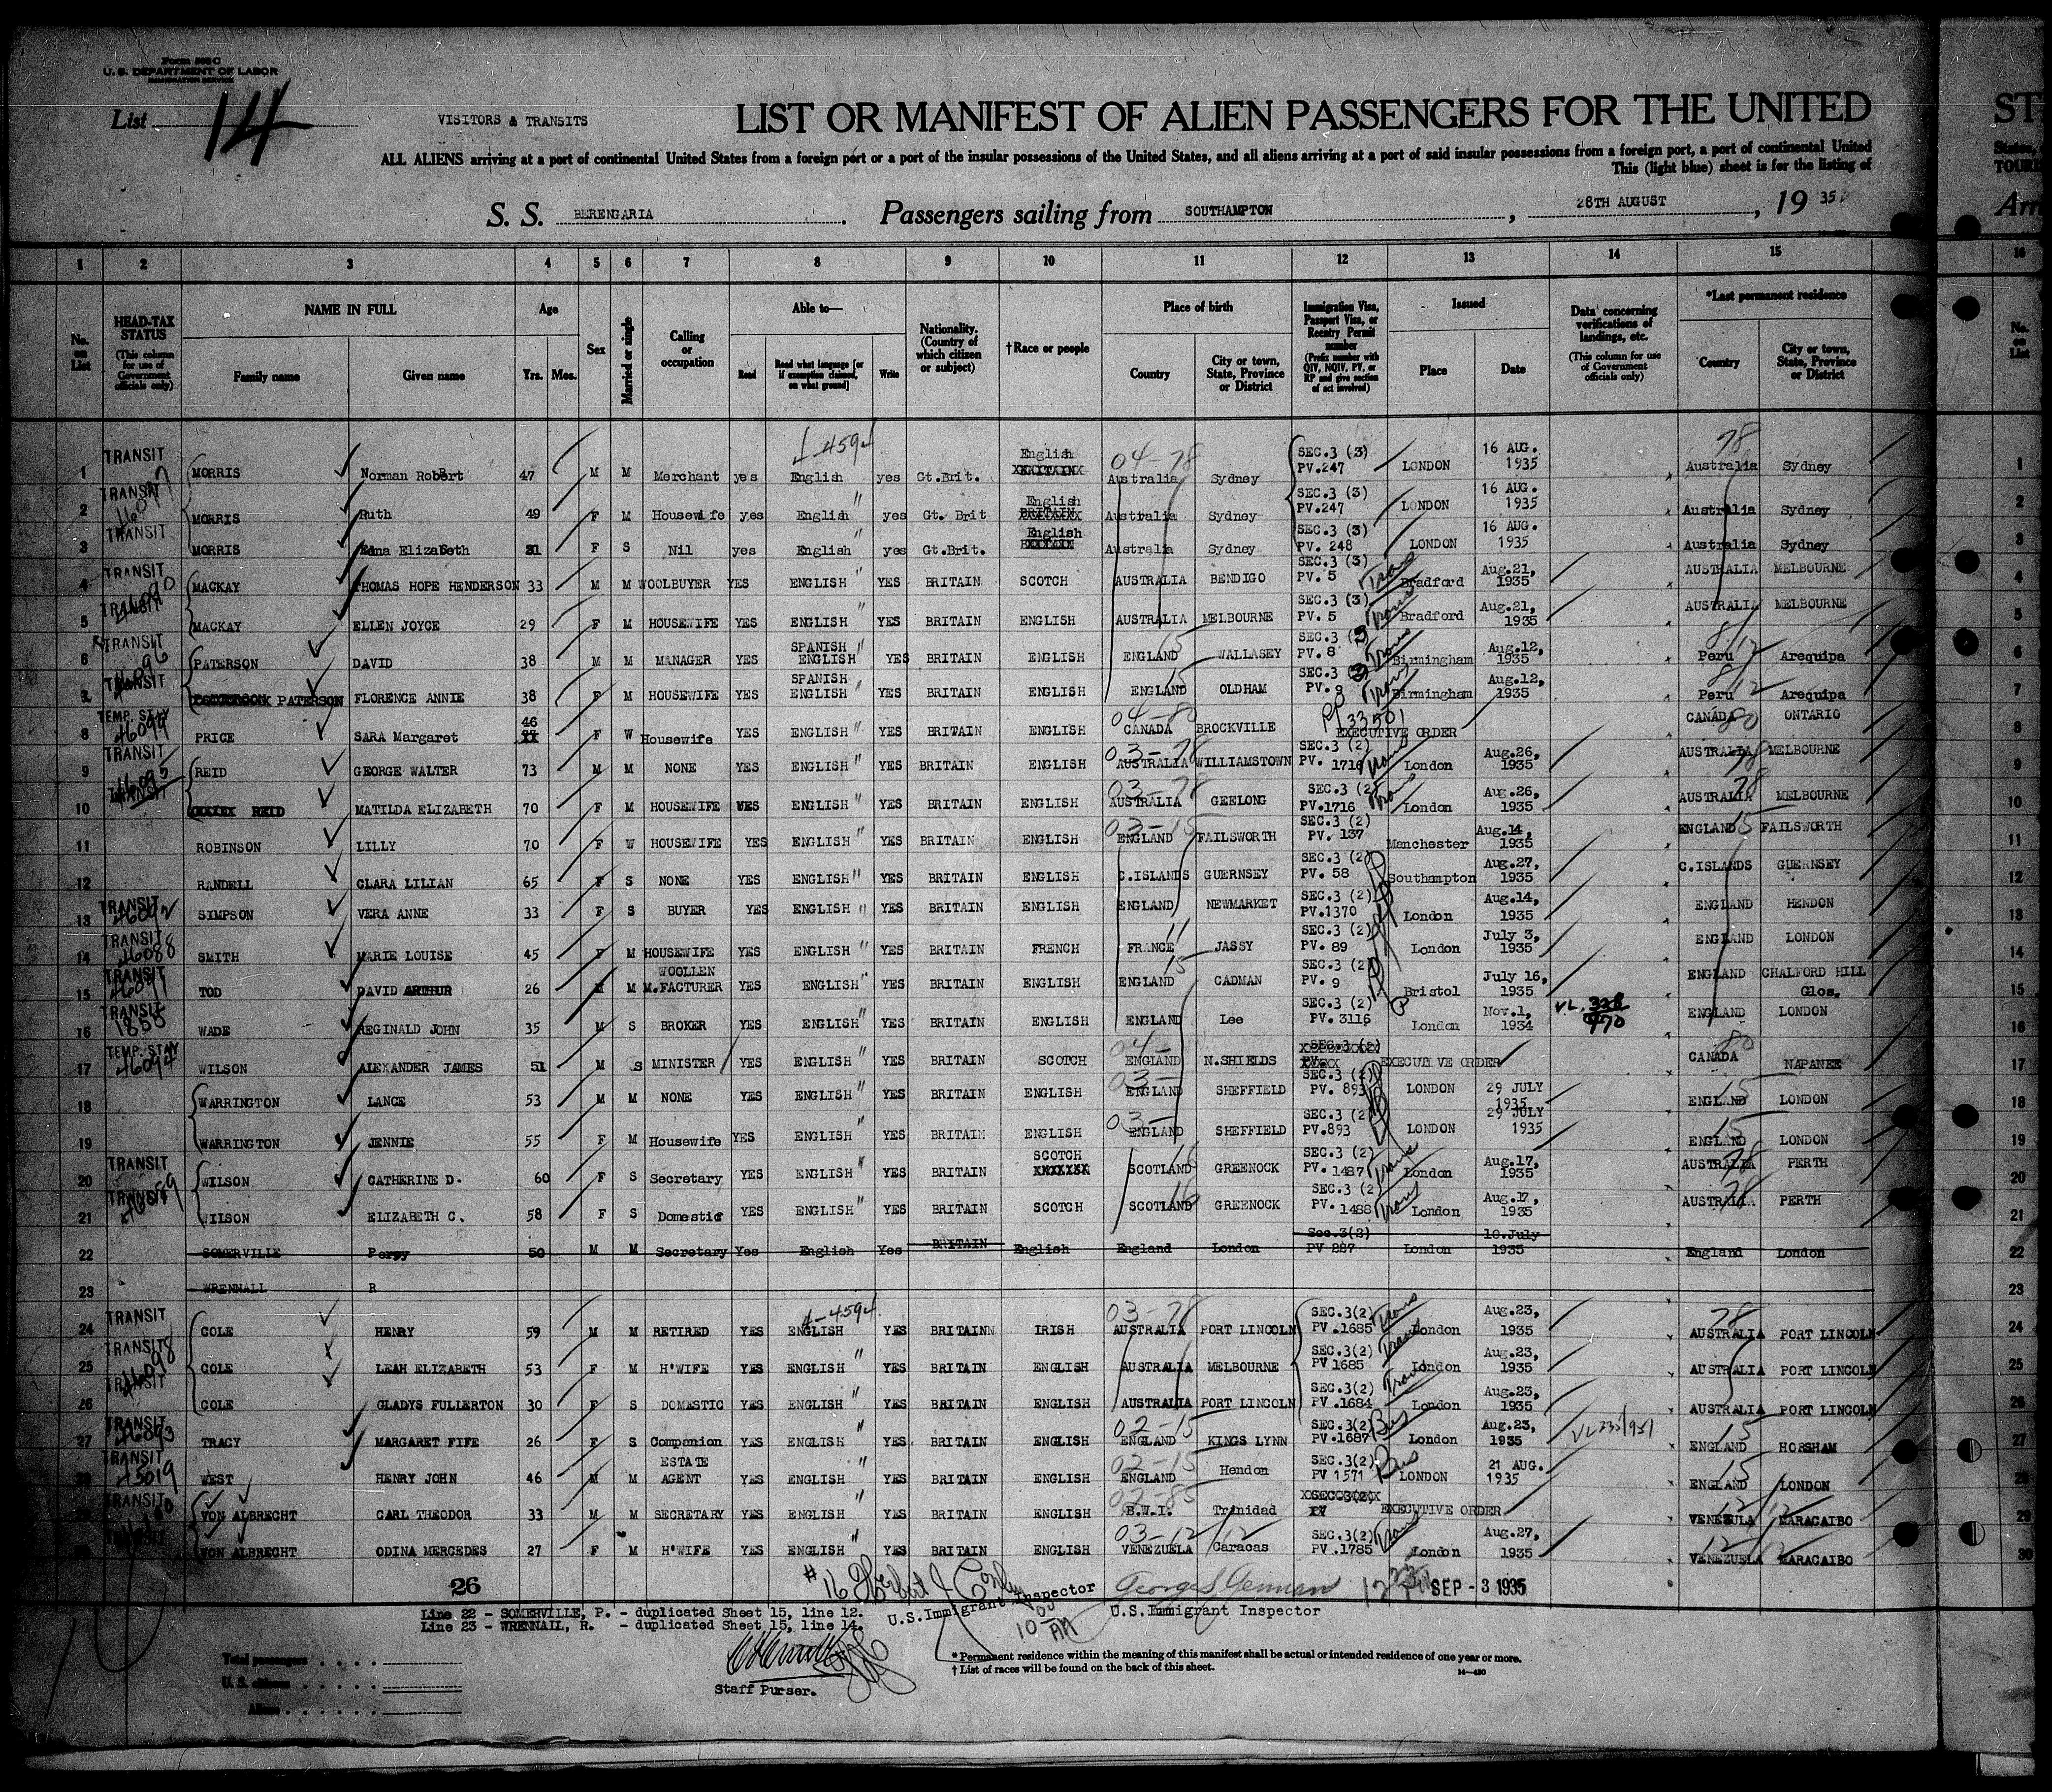 Form 500 C
U. S. DEPARTMENT OF LABOR
List 14
VISITORS & TRANSITS
LIST OR MANIFEST OF ALIEN PASSENGERS FOR THE UNITED
ALL ALIENS arriving at a port of continental United States from a foreign port or a port of the insular possessions of the United States, and all aliens arriving at a port of said insular possessions from a foreign port, a port of continental United
This (light blue) sheet is for the listing of
S. S. BERENGARIA. Passengers sailing from SOUTHAMPTON, 28TH AUGUST, 19 35
1 2 3 4 5 6 7 8 9 10 11 12 13 14 15 16
No. on List
HEAD-TAX STATUS (This column for use of Government officials only)
NAME IN FULL Family name Given name
Age Yrs. Mos.
Sex
Married or single
Calling or occupation
Able to— Read Read what language [or if exemption claimed, on what ground] Write
Nationality. (Country of which citizen or subject)
†Race or people
Place of birth Country City or town, State, Province or District
Immigration Visa, Passport Visa, or Reentry Permit number (Prefix number with QIV, NQIV, PV, or RP and give section of act involved)
Issued Place Date
Data concerning verifications of landings, etc. (This column for use of Government officials only)
*Last permanent residence Country City or town, State, Province or District
No. on List
1 TRANSIT MORRIS Norman Robert 47 M M Merchant yes English yes Gt.Brit. English Australia Sydney SEC.3 (3) PV.247 LONDON 16 AUG. 1935 Australia Sydney 1
2 TRANSIT MORRIS Ruth 49 F M Housewife yes English " yes Gt. Brit English Australia Sydney SEC.3 (3) PV.247 LONDON 16 AUG. 1935 Australia Sydney 2
3 TRANSIT MORRIS Edna Elizabeth 21 F S Nil yes English " yes Gt.Brit. English Australia Sydney SEC.3 (3) PV. 248 LONDON 16 AUG. 1935 Australia Sydney 3
4 TRANSIT MACKAY THOMAS HOPE HENDERSON 33 M M WOOLBUYER YES ENGLISH YES BRITAIN SCOTCH AUSTRALIA BENDIGO SEC.3 (3) PV. 5 Trans Bradford Aug.21, 1935 AUSTRALIA MELBOURNE 4
5 TRANSIT MACKAY ELLEN JOYCE 29 F M HOUSEWIFE YES ENGLISH " YES BRITAIN ENGLISH AUSTRALIA MELBOURNE SEC.3 (3) PV. 5 Trans Bradford Aug.21, 1935 AUSTRALIA MELBOURNE 5
6 TRANSIT PATERSON DAVID 38 M M MANAGER YES SPANISH ENGLISH " YES BRITAIN ENGLISH ENGLAND WALLASEY SEC.3 (3 PV. 8 Trans Birmingham Aug.12, 1935 Peru Arequipa 6
7 TRANSIT PATERSON FLORENCE ANNIE 38 F M HOUSEWIFE YES SPANISH ENGLISH " YES BRITAIN ENGLISH ENGLAND OLDHAM SEC.3 3 PV. 9 Trans Birmingham Aug.12, 1935 Peru Arequipa 7
8 TEMP. STAY 46099 PRICE SARA Margaret 46 F W Housewife YES ENGLISH " YES BRITAIN ENGLISH 04-80 CANADA BROCKVILLE PP 33501 EXECUTIVE ORDER CANADA ONTARIO 8
9 TRANSIT REID GEORGE WALTER 73 M M NONE YES ENGLISH " YES BRITAIN ENGLISH 03-78 AUSTRALIA WILLIAMSTOWN SEC.3 (2) PV. 1716 Trans London Aug.26, 1935 AUSTRALIA MELBOURNE 9
10 TRANSIT REID MATILDA ELIZABETH 70 F M HOUSEWIFE YES ENGLISH " YES BRITAIN ENGLISH 03-78 AUSTRALIA GEELONG SEC.3 (2) PV.1716 Trans London Aug.26, 1935 AUSTRALIA MELBOURNE 10
11 ROBINSON LILLY 70 F W HOUSEWIFE YES ENGLISH " YES BRITAIN ENGLISH 03-15 ENGLAND FAILSWORTH SEC.3 (2) PV. 137 Manchester Aug.14, 1935 ENGLAND FAILSWORTH 11
12 RANDELL CLARA LILIAN 65 F S NONE YES ENGLISH " YES BRITAIN ENGLISH C.ISLANDS GUERNSEY SEC.3 (2) PV. 58 Southampton Aug.27, 1935 C.ISLANDS GUERNSEY 12
13 TRANSIT 46092 SIMPSON VERA ANNE 33 F S BUYER YES ENGLISH " YES BRITAIN ENGLISH ENGLAND NEWMARKET SEC.3 (2) PV.1370 London Aug.14, 1935 ENGLAND HENDON 13
14 TRANSIT 46088 SMITH MARIE LOUISE 45 F M HOUSEWIFE YES ENGLISH " YES BRITAIN FRENCH FRANCE JASSY SEC.3 (2) PV. 89 London July 3, 1935 ENGLAND LONDON 14
15 TRANSIT 46091 TOD DAVID ARTHUR 26 M M WOOLLEN M.FACTURER YES ENGLISH " YES BRITAIN ENGLISH ENGLAND CADMAN SEC.3 (2) PV. 9 Bristol July 16, 1935 ENGLAND CHALFORD HILL Glos. 15
16 TRANSIT 1858 WADE REGINALD JOHN 35 M S BROKER YES ENGLISH " YES BRITAIN ENGLISH ENGLAND Lee SEC.3 (2) PV. 3116 London Nov.1, 1934 VL. 328/970 ENGLAND LONDON 16
17 TEMP. STAY 46094 WILSON ALEXANDER JAMES 51 M S MINISTER YES ENGLISH " YES BRITAIN SCOTCH ENGLAND N.SHIELDS EXECUTIVE ORDER CANADA NAPANEE 17
18 WARRINGTON LANCE 53 M M NONE YES ENGLISH " YES BRITAIN ENGLISH 03- ENGLAND SHEFFIELD SEC.3 (2) PV. 893 LONDON 29 JULY 1935 ENGLAND LONDON 18
19 WARRINGTON JENNIE 55 F M Housewife YES ENGLISH " YES BRITAIN ENGLISH 03- ENGLAND SHEFFIELD SEC.3 (2) PV.893 LONDON 29 JULY 1935 ENGLAND LONDON 19
20 TRANSIT WILSON CATHERINE D. 60 F S Secretary YES ENGLISH " YES BRITAIN SCOTCH SCOTLAND GREENOCK SEC.3 (2) PV. 1487 Trans London Aug.17, 1935 AUSTRALIA PERTH 20
21 TRANSIT WILSON ELIZABETH C. 58 F S Domestic YES ENGLISH " YES BRITAIN SCOTCH SCOTLAND GREENOCK SEC.3 (2) PV. 1488 Trans London Aug.17, 1935 AUSTRALIA PERTH 21
22 SOMERVILLE Percy 50 M M Secretary Yes English Yes BRITAIN English England London Sec.3(2) PV 287 London 10.July 1935 England London 22
23 WRENNALL R 23
24 TRANSIT COLE HENRY 59 M M RETIRED YES ENGLISH YES BRITAINN IRISH 03-78 AUSTRALIA PORT LINCOLN SEC.3(2) PV.1685 Trans London Aug.23, 1935 AUSTRALIA PORT LINCOLN 24
25 TRANSIT COLE LEAH ELIZABETH 53 F M H'WIFE YES ENGLISH " YES BRITAIN ENGLISH AUSTRALIA MELBOURNE SEC.3(2) PV 1685 Trans London Aug.23, 1935 AUSTRALIA PORT LINCOLN 25
26 TRANSIT COLE GLADYS FULLERTON 30 F S DOMESTIC YES ENGLISH " YES BRITAIN ENGLISH AUSTRALIA PORT LINCOLN SEC.3(2) PV.1684 Trans London Aug.23, 1935 AUSTRALIA PORT LINCOLN 26
27 TRANSIT 46093 TRACY MARGARET FIFE 26 F S Companion YES ENGLISH " YES BRITAIN ENGLISH 02-15 ENGLAND KINGS LYNN SEC.3(2) PV.1687 Bus London Aug.23, 1935 ENGLAND HORSHAM 27
28 TRANSIT 45019 WEST HENRY JOHN 46 M M ESTATE AGENT YES ENGLISH " YES BRITAIN ENGLISH 02-15 ENGLAND Hendon SEC.3(2) PV 1571 Bus LONDON 21 AUG. 1935 ENGLAND LONDON 28
29 TRANSIT VON ALBRECHT CARL THEODOR 33 M M SECRETARY YES ENGLISH " YES BRITAIN ENGLISH 02-85 B.W.I. Trinidad EXECUTIVE ORDER VENEZULA MARACAIBO 29
30 VON ALBRECHT ODINA MERCEDES 27 F M H'WIFE YES ENGLISH " YES BRITAIN ENGLISH 03-12 VENEZUELA Caracas SEC.3(2) PV.1785 Trans London Aug.27, 1935 VENEZUELA MARACAIBO 30
26
#16 U.S. Immigrant Inspector
10 00 AM
U.S. Immigrant Inspector
SEP - 3 1935
Line 22 - SOMERVILLE, P. - duplicated Sheet 15, line 12.
Line 23 - WRENNALL, R. - duplicated Sheet 15, line 14.
Staff Purser.
Total passengers
U.S. citizens
Aliens
* Permanent residence within the meaning of this manifest shall be actual or intended residence of one year or more.
† List of races will be found on the back of this sheet.
14—430